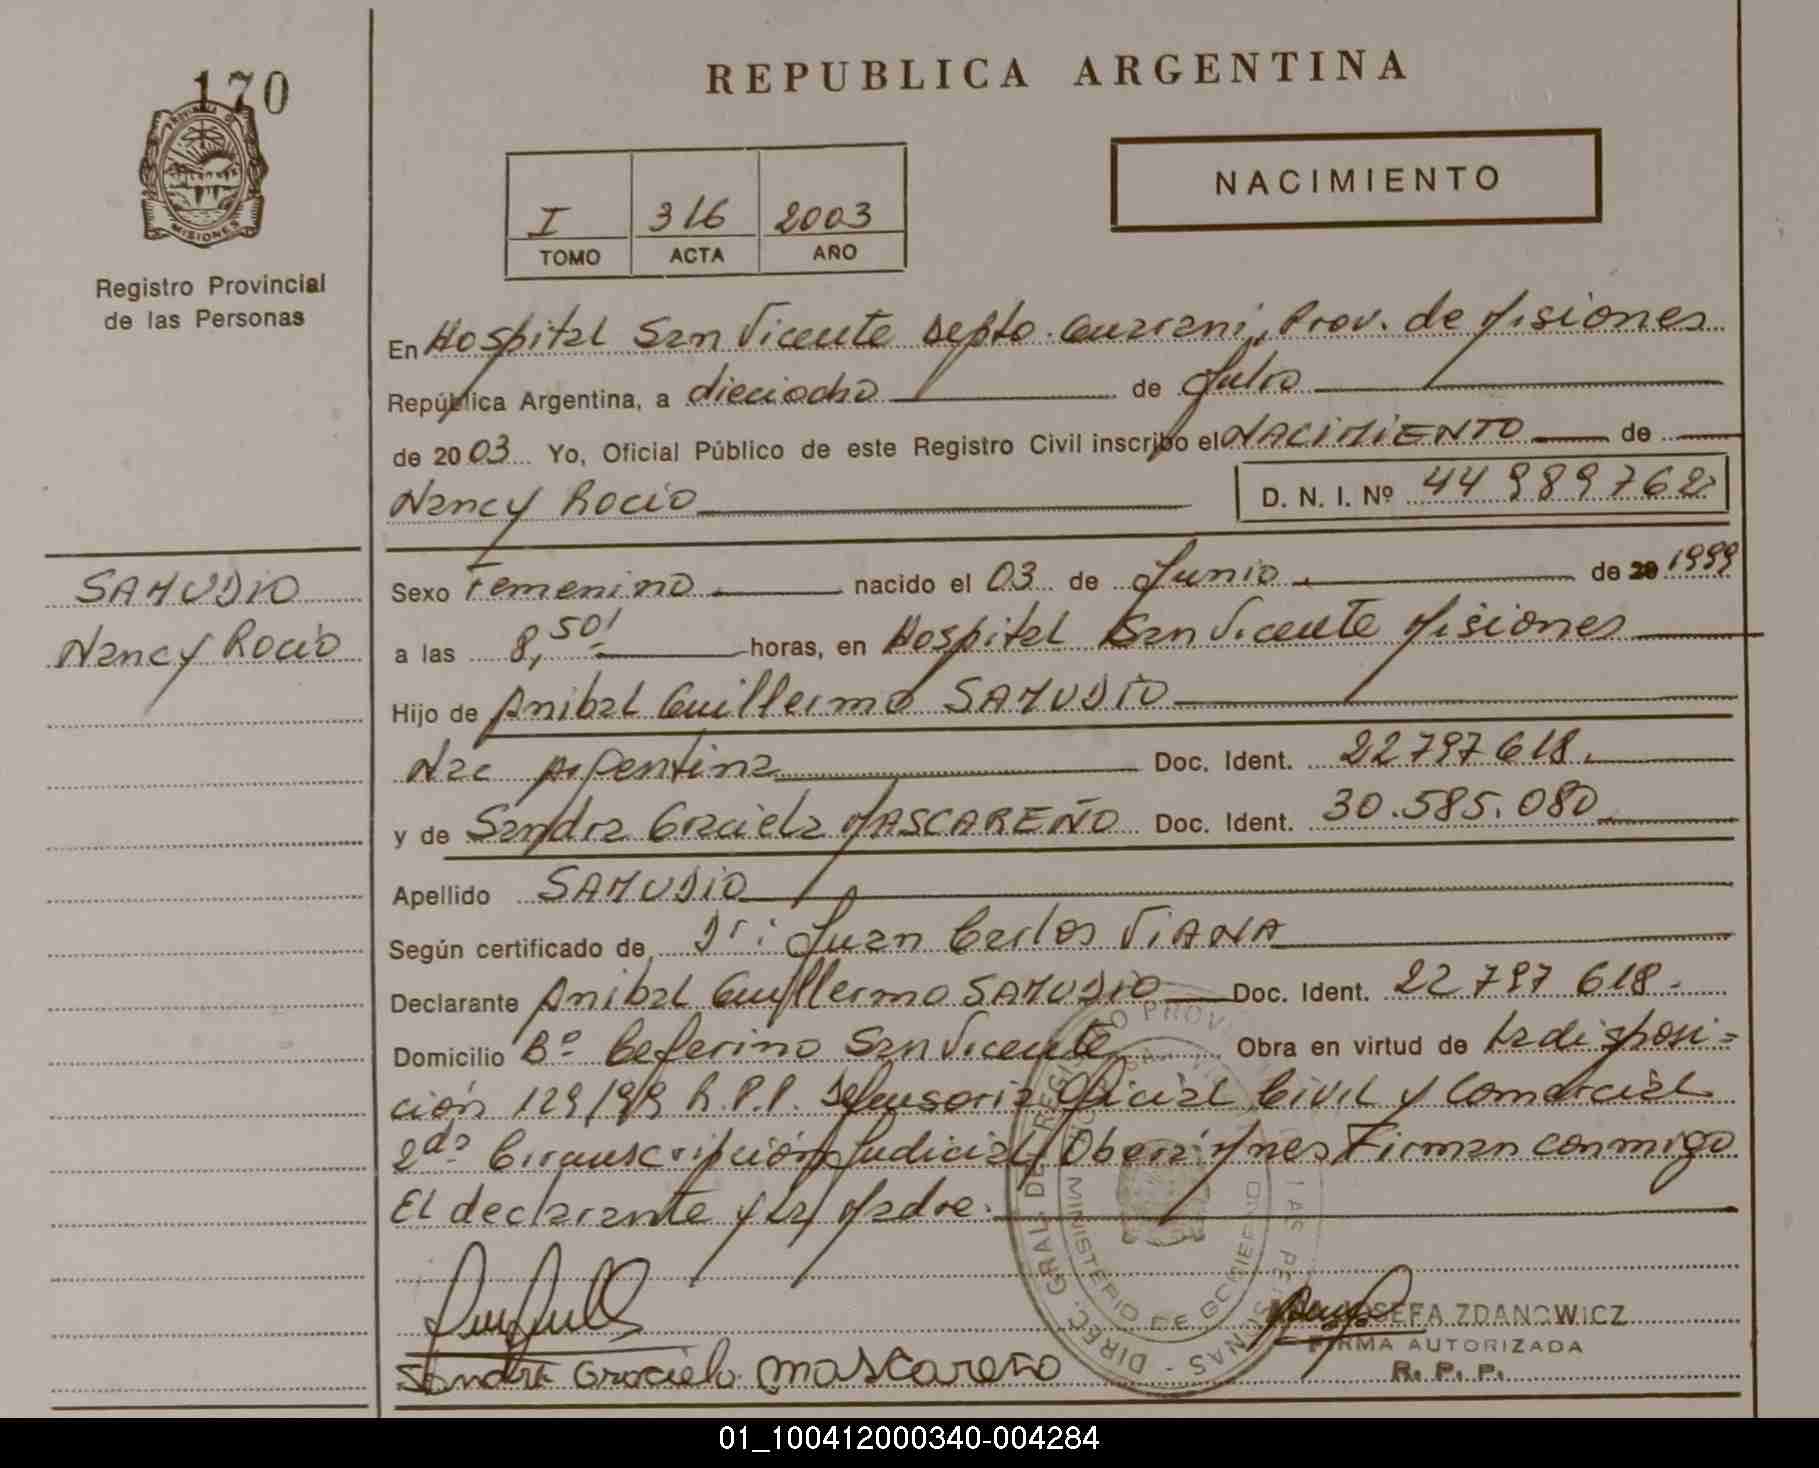 170
REPUBLICA ARGENTINA
NACIMIENTO
I 316 2003
TOMO ACTA AÑO
MISIONES
Registro Provincial
de las Personas
En Hospital San Vicente Depto. Guarani, Prov. de Misiones
República Argentina, a dieciocho de Julio
de 2003 Yo, Oficial Público de este Registro Civil inscribo el NACIMIENTO de
Nancy Rocio D. N. I. Nº 44989762
SAMUDIO
Nancy Rocio
Sexo Femenino nacido el 03 de Junio de 20 1999
a las 8,50' horas, en Hospital San Vicente Misiones
Hijo de Anibal Guillermo SAMUDIO
Nac Argentina Doc. Ident. 22797618.
y de Sandra Graciela MASCAREÑO Doc. Ident. 30.585.080
Apellido SAMUDIO
Según certificado de Dr: Juan Carlos ViANA
Declarante Anibal Guillermo SAMUDIO Doc. Ident. 22797618.
Domicilio Bº Ceferino San Vicente Obra en virtud de la disposi=
ción 129/99 R.P.P. Defensoria Oficial Civil y Comercial
2da Circunscripción Judicial Obera Mnes Firman conmigo
El declarante y la Madre.
DIREC. GRAL. DE REGISTRO PROV
MINISTERIO DE GOBIERNO
JOSEFA ZDANOWICZ
FIRMA AUTORIZADA
R. P. P.
Sandra Graciela mascareño
01_100412000340-004284